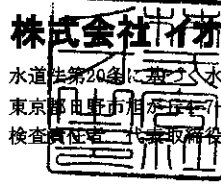 株式会社 イオ
水道法第20条に基づく水
東京都日野市旭が丘4-7-
検査責任者 代表取締役